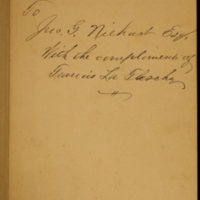 To
Jno. G. Neihart Esq.
With the compliments of
Francis La Flesche